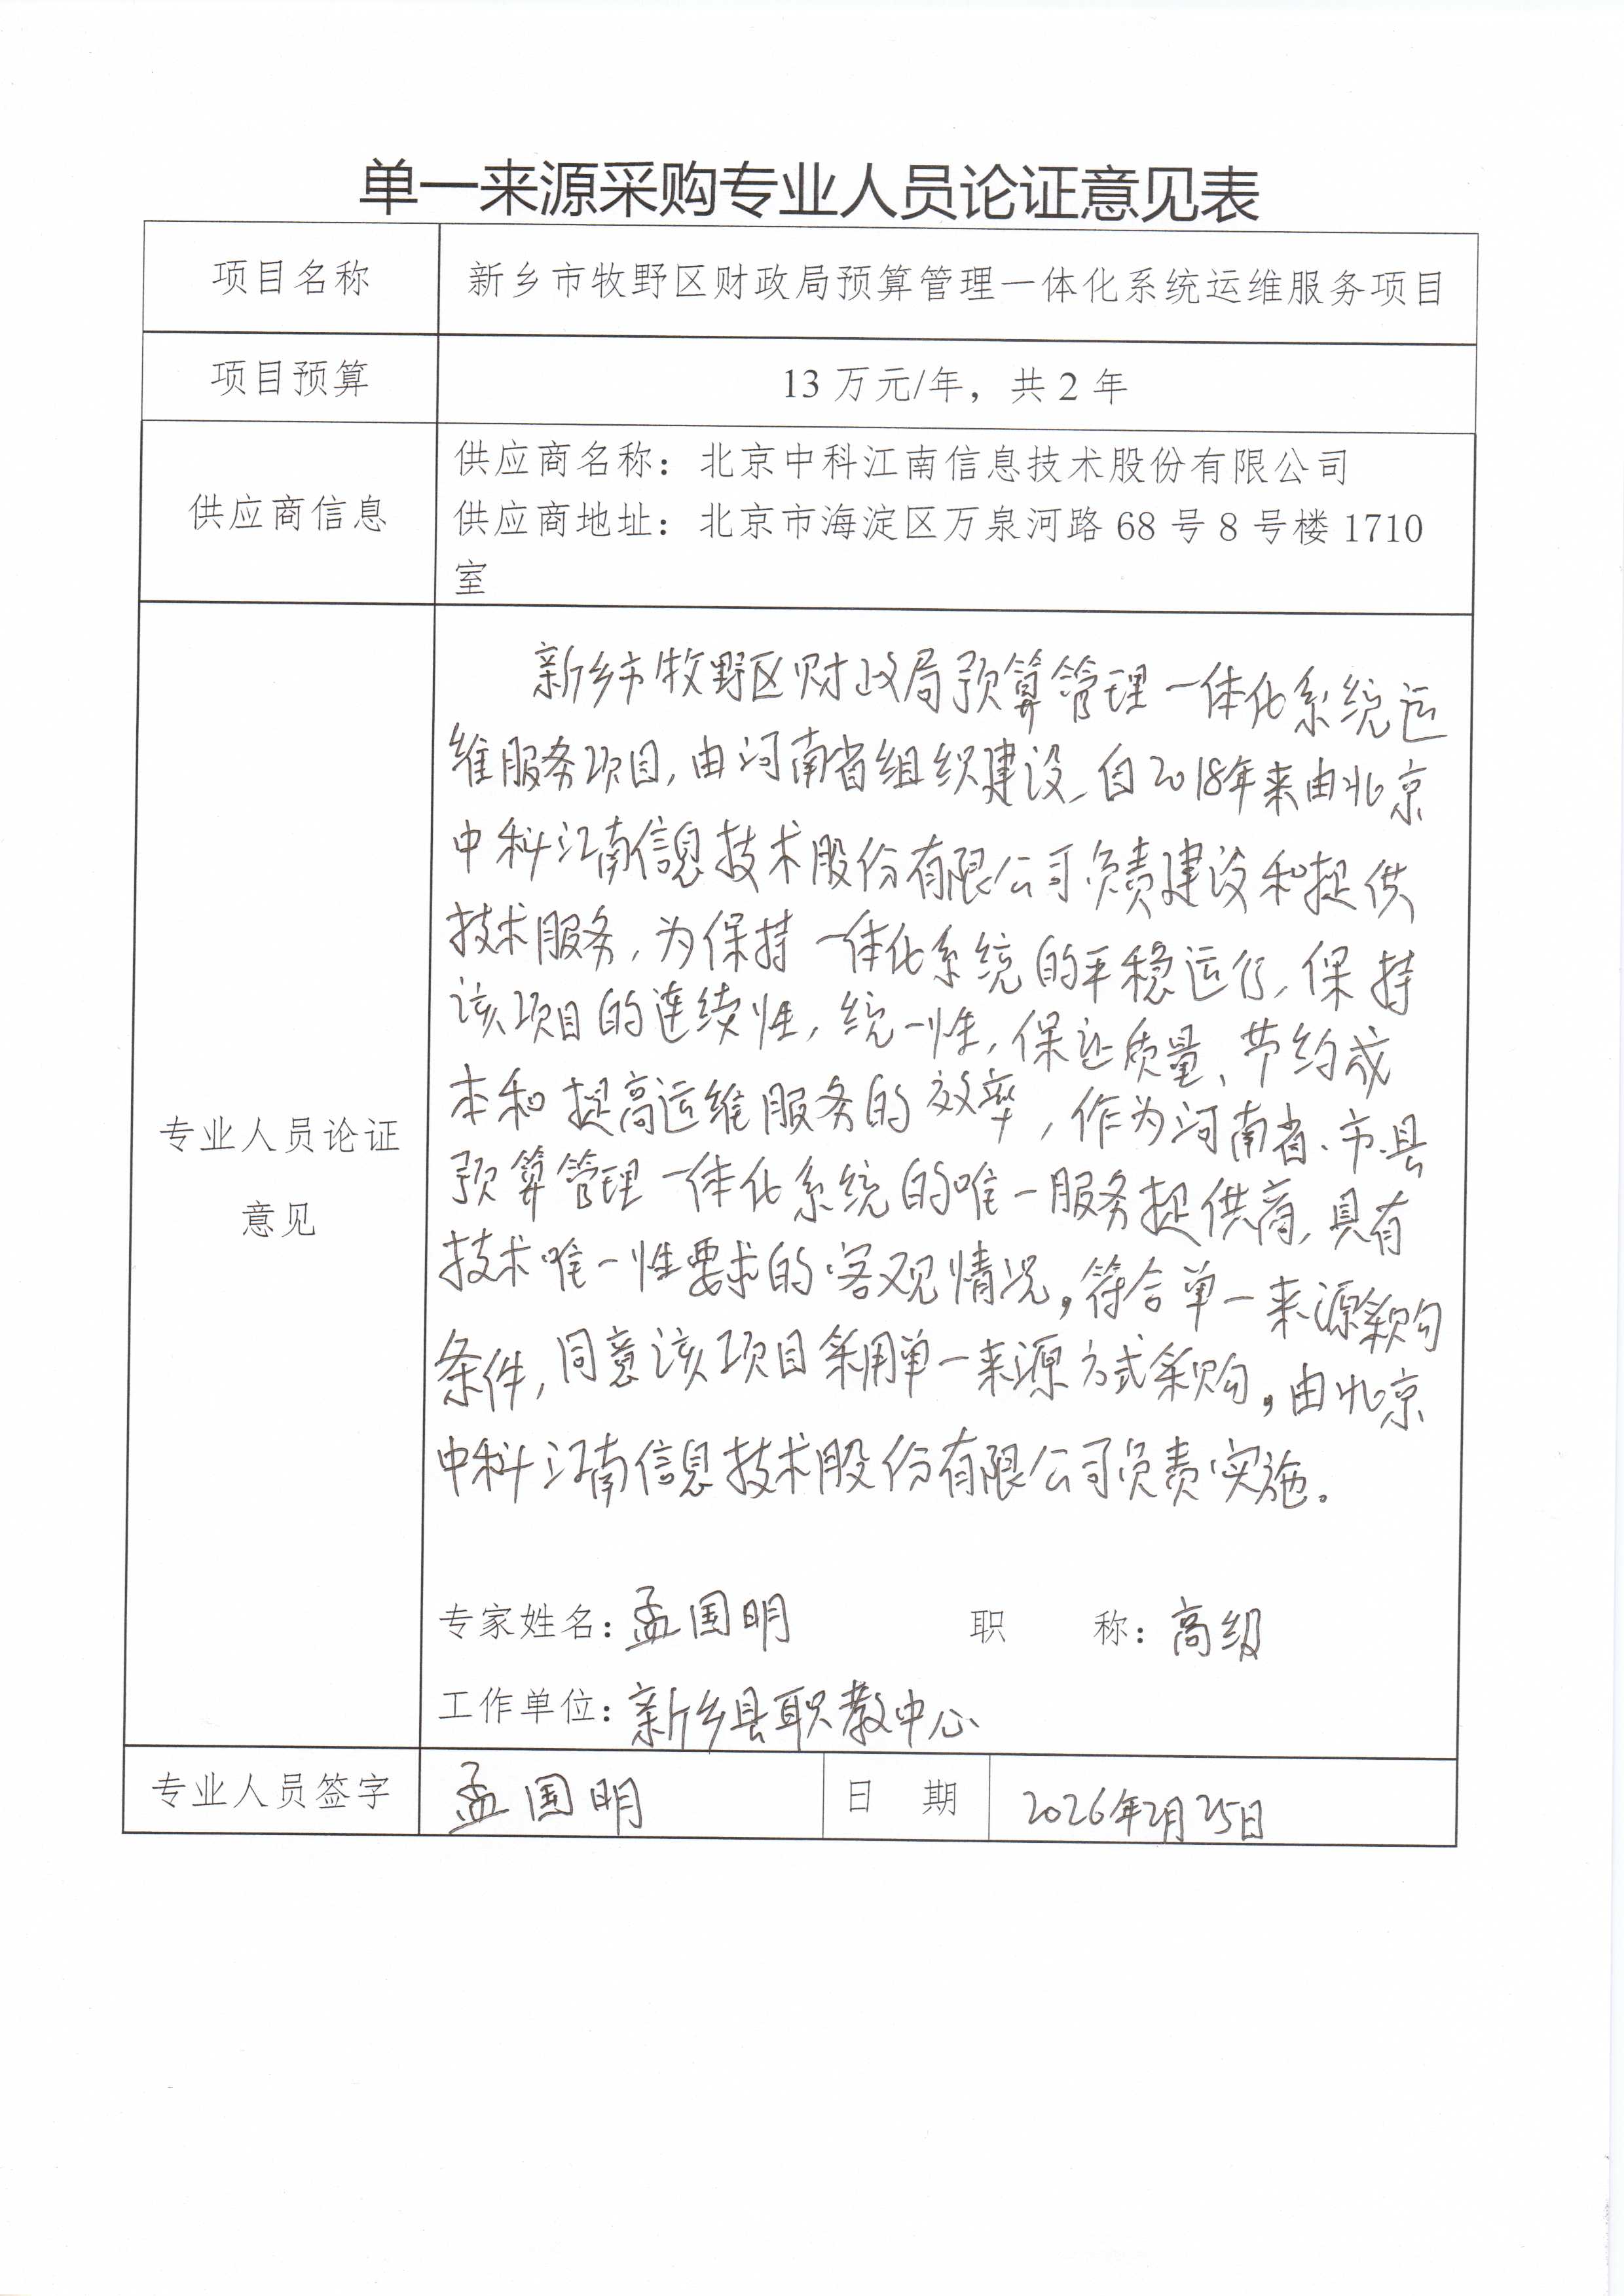 单一来源采购专业人员论证意见表
项目名称
新乡市牧野区财政局预算管理一体化系统运维服务项目
项目预算
13万元/年，共2年
供应商信息
供应商名称：北京中科江南信息技术股份有限公司
供应商地址：北京市海淀区万泉河路68号8号楼1710
室
专业人员论证
意见
新乡市牧野区财政局预算管理一体化系统运
维服务项目,由河南省组织建设、自2018年来由北京
中科江南信息技术股份有限公司负责建设和提供
技术服务,为保持一体化系统的平稳运行,保持
该项目的连续性,统一性,保证质量、节约成
本和提高运维服务的效率,作为河南省、市、县
预算管理一体化系统的唯一服务提供商,具有
技术唯一性要求的客观情况,符合单一来源采购
条件,同意该项目采用单一来源方式采购,由北京
中科江南信息技术股份有限公司负责实施。
专家姓名：孟国明 职 称：高级
工作单位：新乡县职教中心
专业人员签字 孟国明 日 期 2026年2月25日